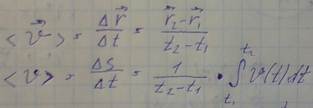 <v⃗> = Δr⃗/Δt = (r⃗₂-r⃗₁)/(t₂-t₁)
<v> = Δs/Δt = 1/(t₂-t₁) · ∫ₜ₁ᵗ² v(t)dt